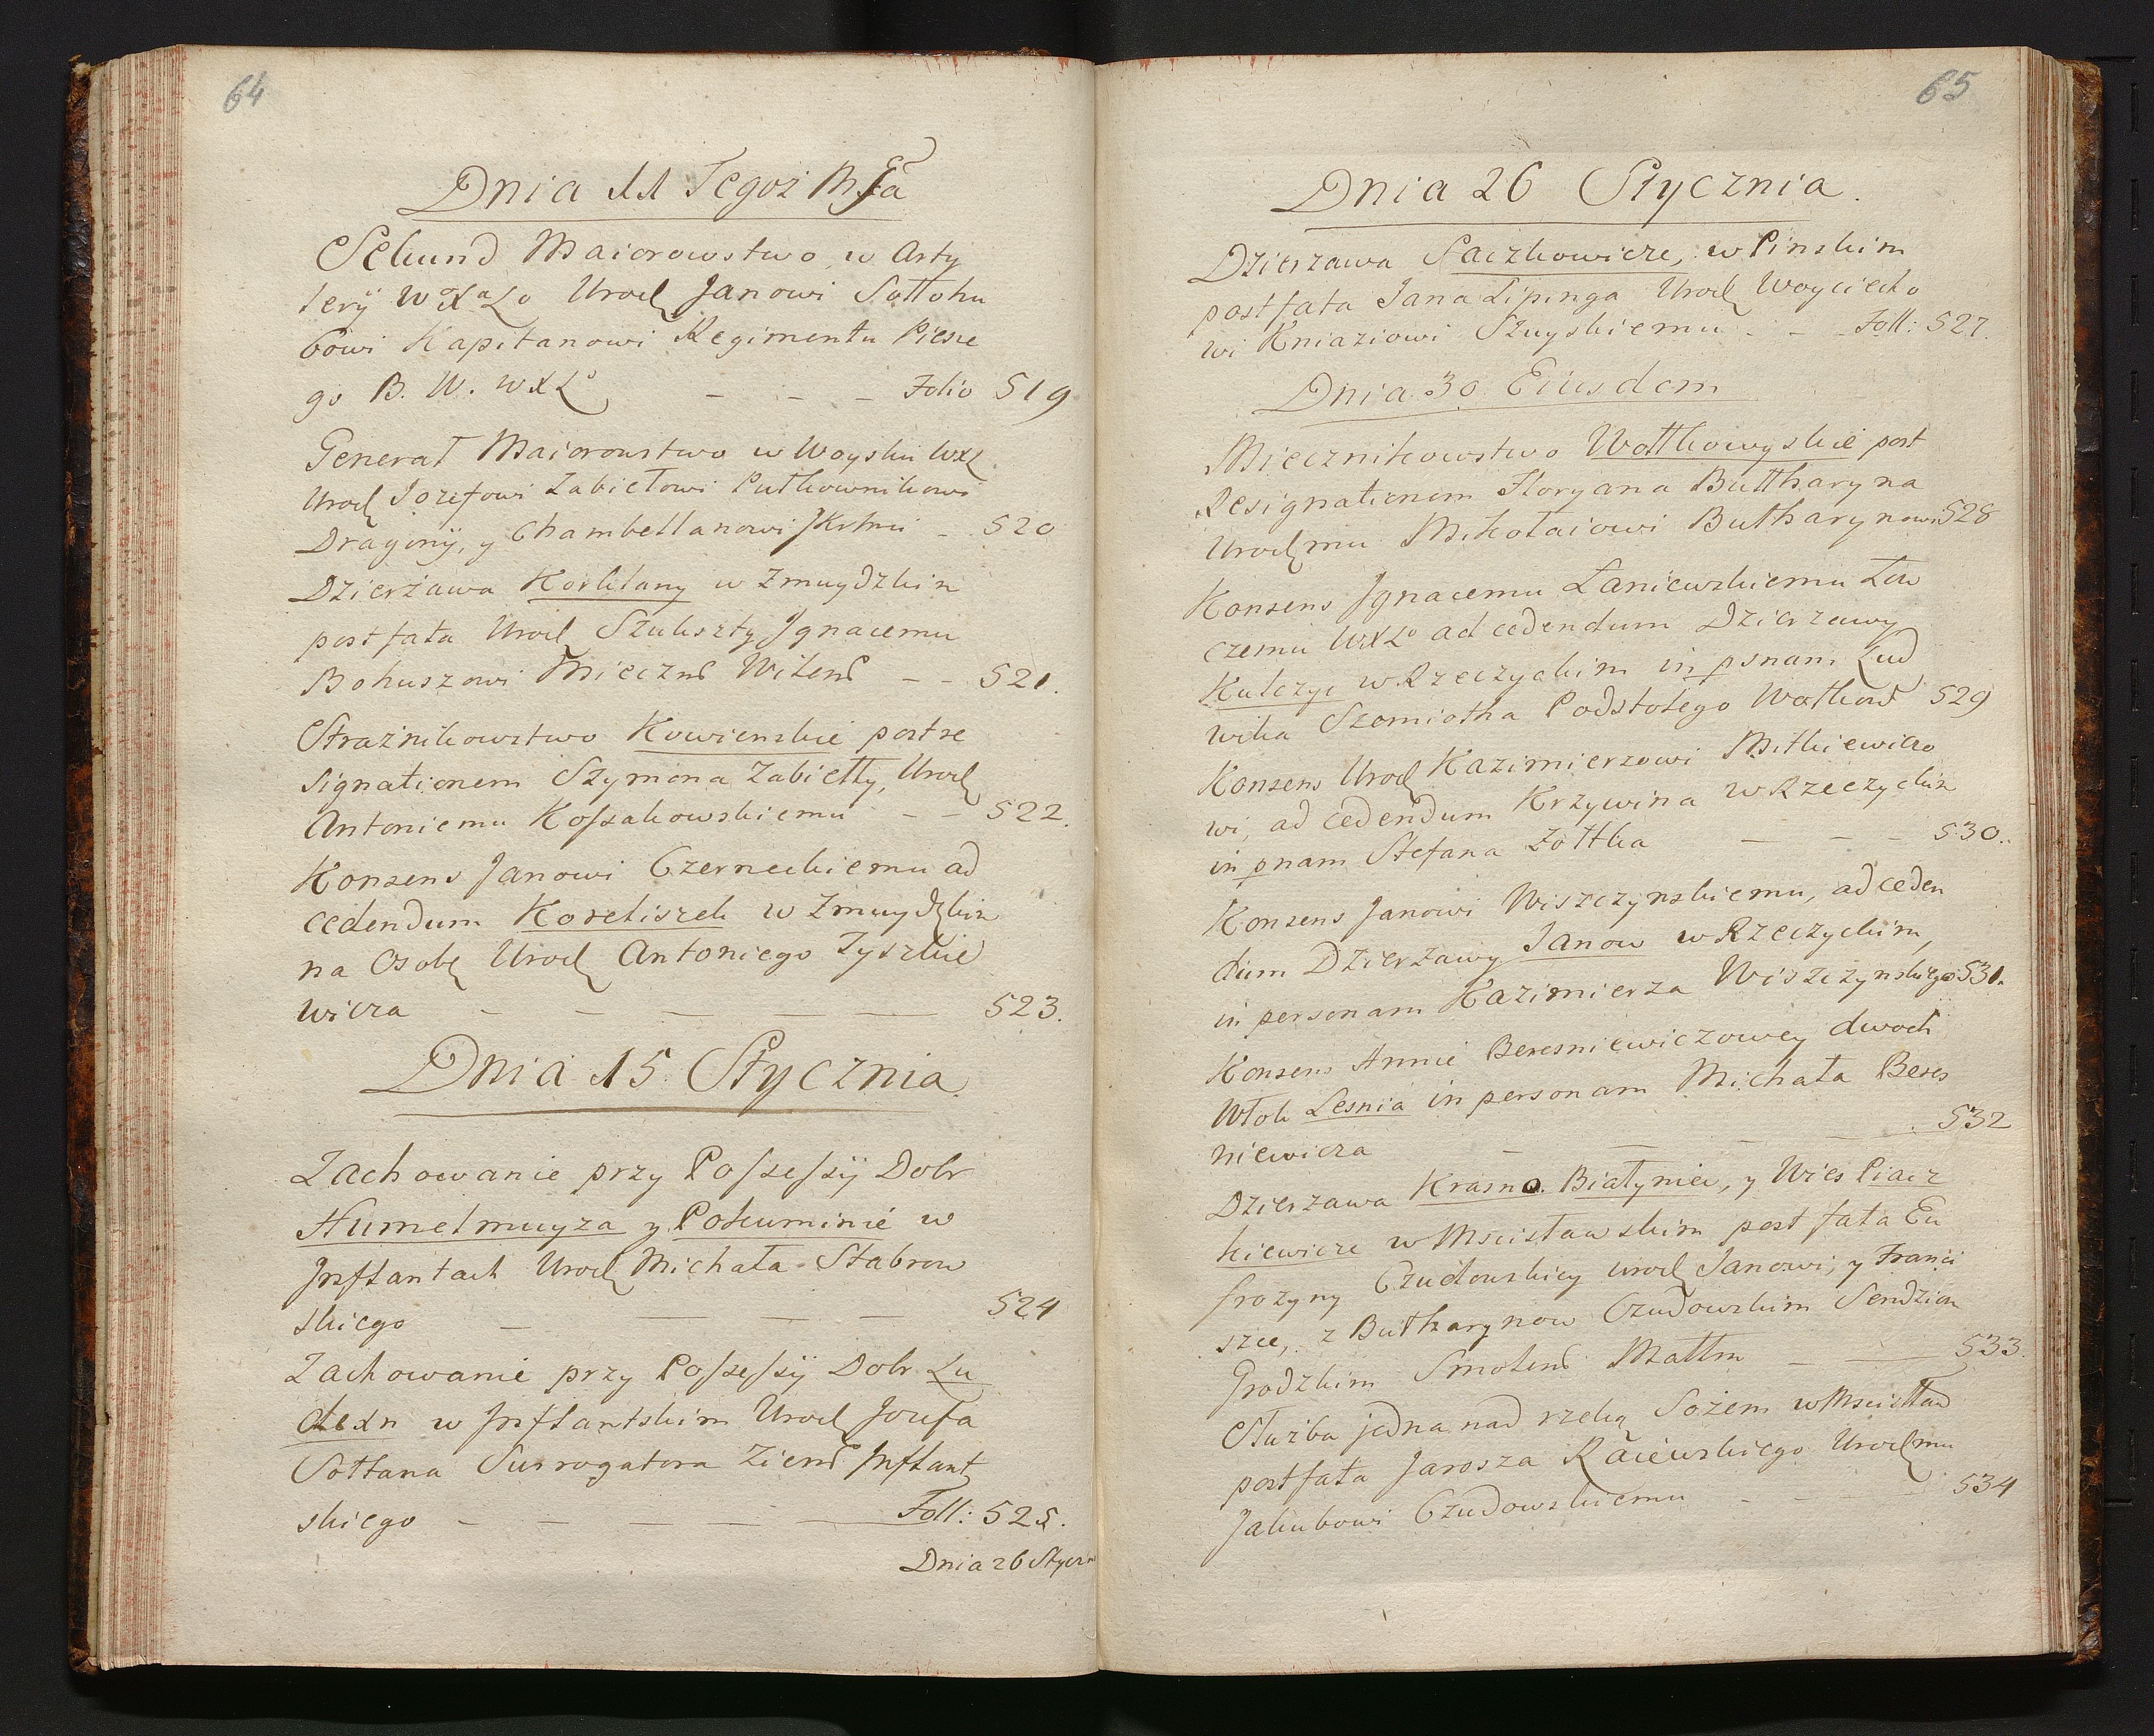 64
Dnia 11 Tegoż Mca
Sekund Maiorowstwo w Arty
leryi WXaLo Urodz Janowi Sołłohu
bowi Kapitanowi Regimentu Piesze
go B. W. WXLo — — — Folio 519
Generał Maiorowstwo w Woysku WXL
Urodz Jozefowi Zabiełowi Pułkownikowi
Dragonij, y Chambellanowi JKrMci — 520
Dzierżawa Korklany w Zmuydzkim
post fata Urod Szukszty Ignacemu
Bohuszowi Miecznd Wilend — — 521.
Strażnikowstwo Kowienskie post re
signationem Szymona Zabiełły, Urodz
Antoniemu Kossakowskiemu — — 522.
Konsens Janowi Czerneckiemu ad
cedendum Koreliszek w Zmuydzkim
na Osobę Urodz Antoniego Tyszkie
wicza — — — — — 523.
Dnia 15 Stycznia.
Zachowanie przy Possessyi Dobr
Humelmuyza y Pokuminie w
Inflantach Urodz Michała Stabrow
skiego — — — — 524
Zachowanie przy Possessyi Dobr Lu
dexn w Inflantskim Urod Jozefa
Sołtana Surrogatora Ziemd Inflant
skiego — — — — — Foll: 525.
Dnia 26 Styczn
65
Dnia 26 Stycznia.
Dzierzawa Saczkowicze, w Pinskim
post fata Jana Lipinga Urodz Woyciecho
wi Kniaziowi Szuyskiemu — — Foll: 527.
Dnia 30 Eiusdem
Miecznikowstwo Wołkowyskie post
Resignationem Floryana Bułharyna
Urodzmu Mikołaiowi Bułharynowi 528
Konsens Ignacemu Łaniewskiemu Łow
czemu WXLo ad cedendum Dzierzawy
Kulczyc w Rzeczyckim in psnam Lud
wika Szemiotha Podstolego Wołkowd 529
Konsens Urodz Kazimierzowi Mitkiewiczo
wi, ad cedendum Krzywina w Rzeczyckim
in pnam Stefana Żołtka — — — 530..
Konsens Janowi Wiszczynskiemu, ad ceden
dum Dzierżawy Janow w Rzeczyckim,
in personam Kazimierza Wiszczynskiego 531.
Konsens Annie Beresniewiczowey dwoch
Włok Lesnia in personam Michała Beres
niewicza — — — — 532
Dzierzawa Krasno. Białynicz, y Wies Piacz
kiewicze w Mscisławskim post fata Eu
frozyny Czudowskiey Urodz Janowi, y Franci
szce, z Bułharynow Czudowskim Sendziom
Grodzkim Smolend Małłm — — 533.
Służba jedna nad rzeką Sożem w Mscisławd
post fata Jarosza Raiewskiego Urodzmu
Jakubowi Czudowskiemu — — — 534